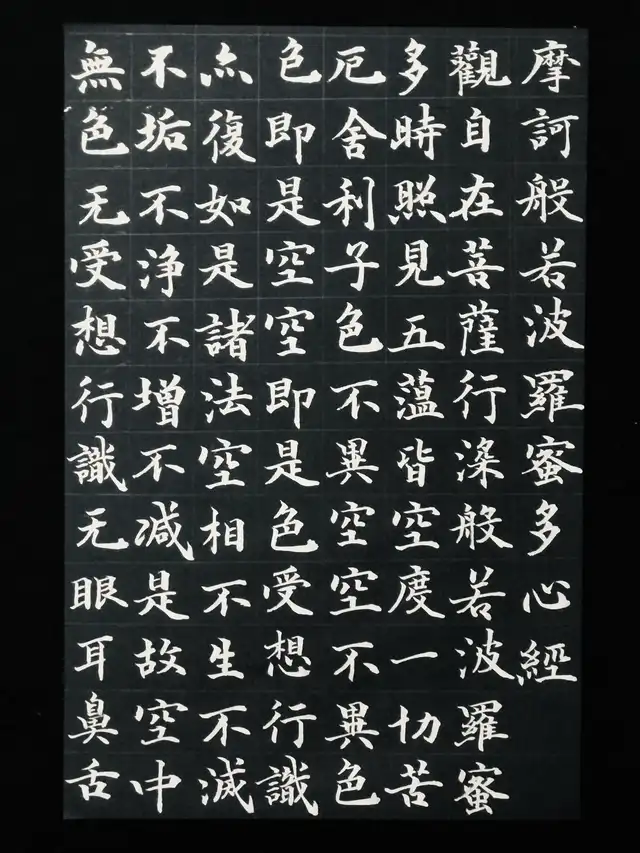 摩訶般若波羅蜜多心經
觀自在菩薩行深般若波羅蜜
多時照見五蕰皆空度一切苦
厄舍利子色不異空空不異色
色即是空空即是色受想行識
亦復如是諸法空相不生不滅
不垢不浄不增不減是故空中
無色无受想行識无眼耳鼻舌